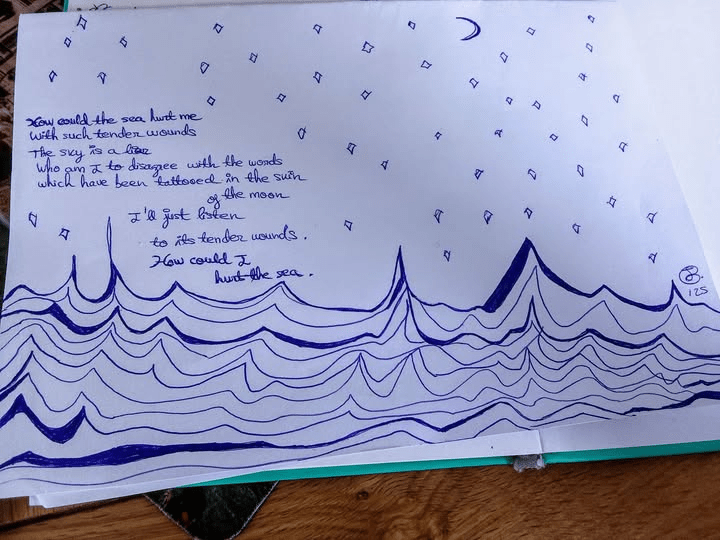 How could the sea hurt me
With such tender wounds
The sky is a liar
Who am I to disagree with the words
which have been tattooed in the skin
of the moon
I'll just listen
to its tender wounds.
How could I
hurt the sea.
125